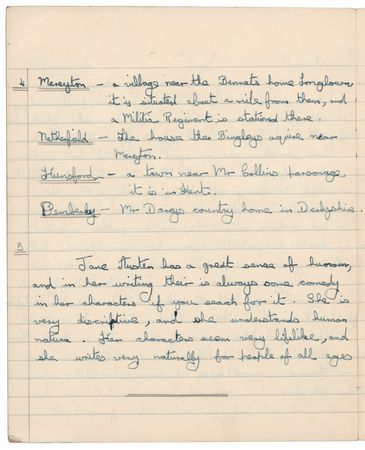 4 Meryton – a village near the Bennets home Longbourn
it is situated about a mile from them, and
a Militia Regiment is stationed there.
Netherfield – The house the Bingleys aquire near
Meryton.
Hunsford – a town near Mr Collins parsonage
it is in Kent.
Pemberley – Mr Darcys country home in Derbyshire.
5
Jane Austen has a great sense of humour,
and in her writing their is always some comedy
in her characters if you seach for it. She is
very discriptive, and she understands human
nature. Her characters seem very lifelike, and
she writes very naturally for people of all ages